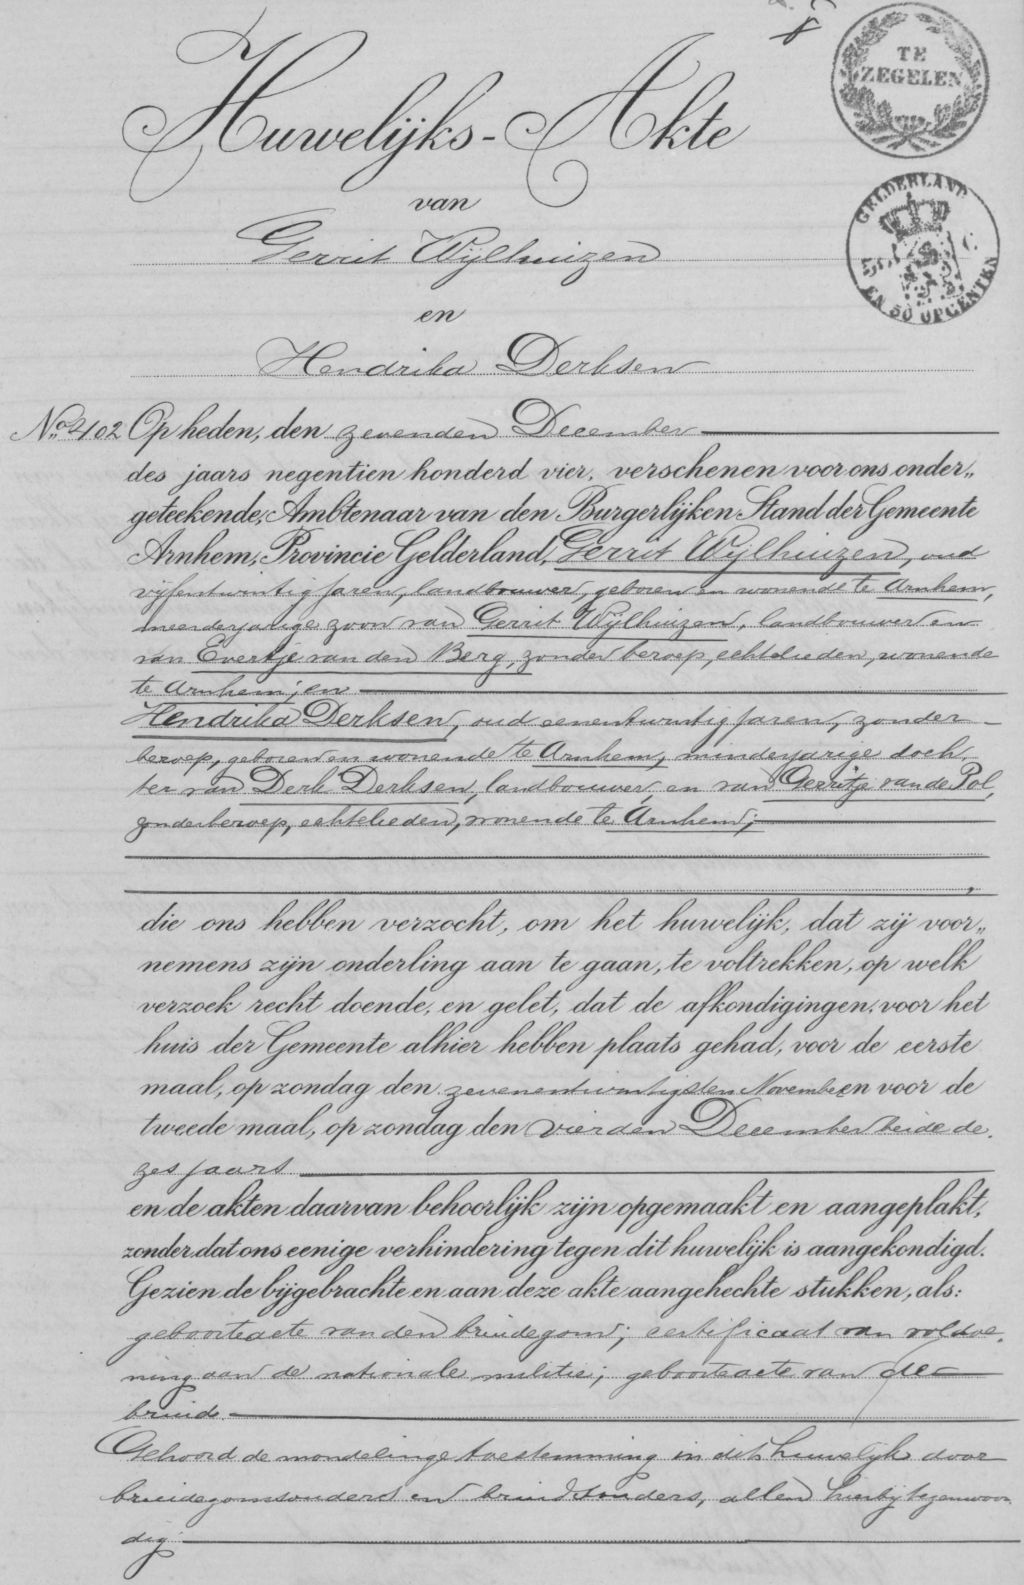 8
TE
ZEGELEN
Huwelijks-Akte
GELDERLAND
50 C
EN 50 OPCENTEN
van
Gerrit Wijlhuizen
en
Hendrika Derksen
No. 402 Op heden, den zevenden December
des jaars negentien honderd vier, verschenen voor ons onder„
geteekende, Ambtenaar van den Burgerlijken Stand der Gemeente
Arnhem, Provincie Gelderland, Gerrit Wijlhuizen, oud
vijfentwintig jaren, landbouwer, geboren en wonende te Arnhem,
meerderjarige zoon van Gerrit Wijlhuizen, landbouwer en
van Evertje van den Berg, zonder beroep, echtelieden, wonende
te Arnhem; en
Hendrika Derksen, oud eenentwintig jaren, zonder
beroep, geboren en wonende te Arnhem, minderjarige doch„
ter van Derk Derksen, landbouwer, en van Gerritje van de Pol,
zonder beroep, echtelieden, wonende te Arnhem;
,
die ons hebben verzocht, om het huwelijk, dat zij voor„
nemens zijn onderling aan te gaan, te voltrekken, op welk
verzoek recht doende, en gelet, dat de afkondigingen, voor het
huis der Gemeente alhier hebben plaats gehad, voor de eerste
maal, op zondag den zevenentwintigsten November en voor de
tweede maal, op zondag den vierden December beide de„
zes jaars
en de akten daarvan behoorlijk zijn opgemaakt en aangeplakt,
zonder dat ons eenige verhindering tegen dit huwelijk is aangekondigd.
Gezien de bijgebrachte en aan deze akte aangehechte stukken, als:
geboorteacte van den bruidegom; certificaat van voldoe„
ning aan de nationale militie; geboorteacte van de
bruid.
Gehoord de mondelinge toestemming in dit huwelijk door
bruidegomsouders en bruidsouders, allen hierbij tegenwoor„
dig.